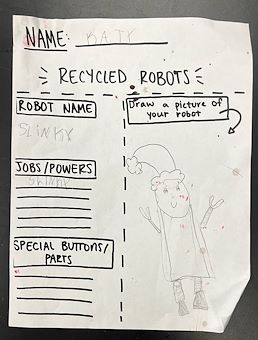 NAME: KATY
RECYCLED ROBOTS
ROBOT NAME
SLINKY
Draw a picture of
your robot
JOBS/POWERS
SPECIAL BUTTONS/
PARTS